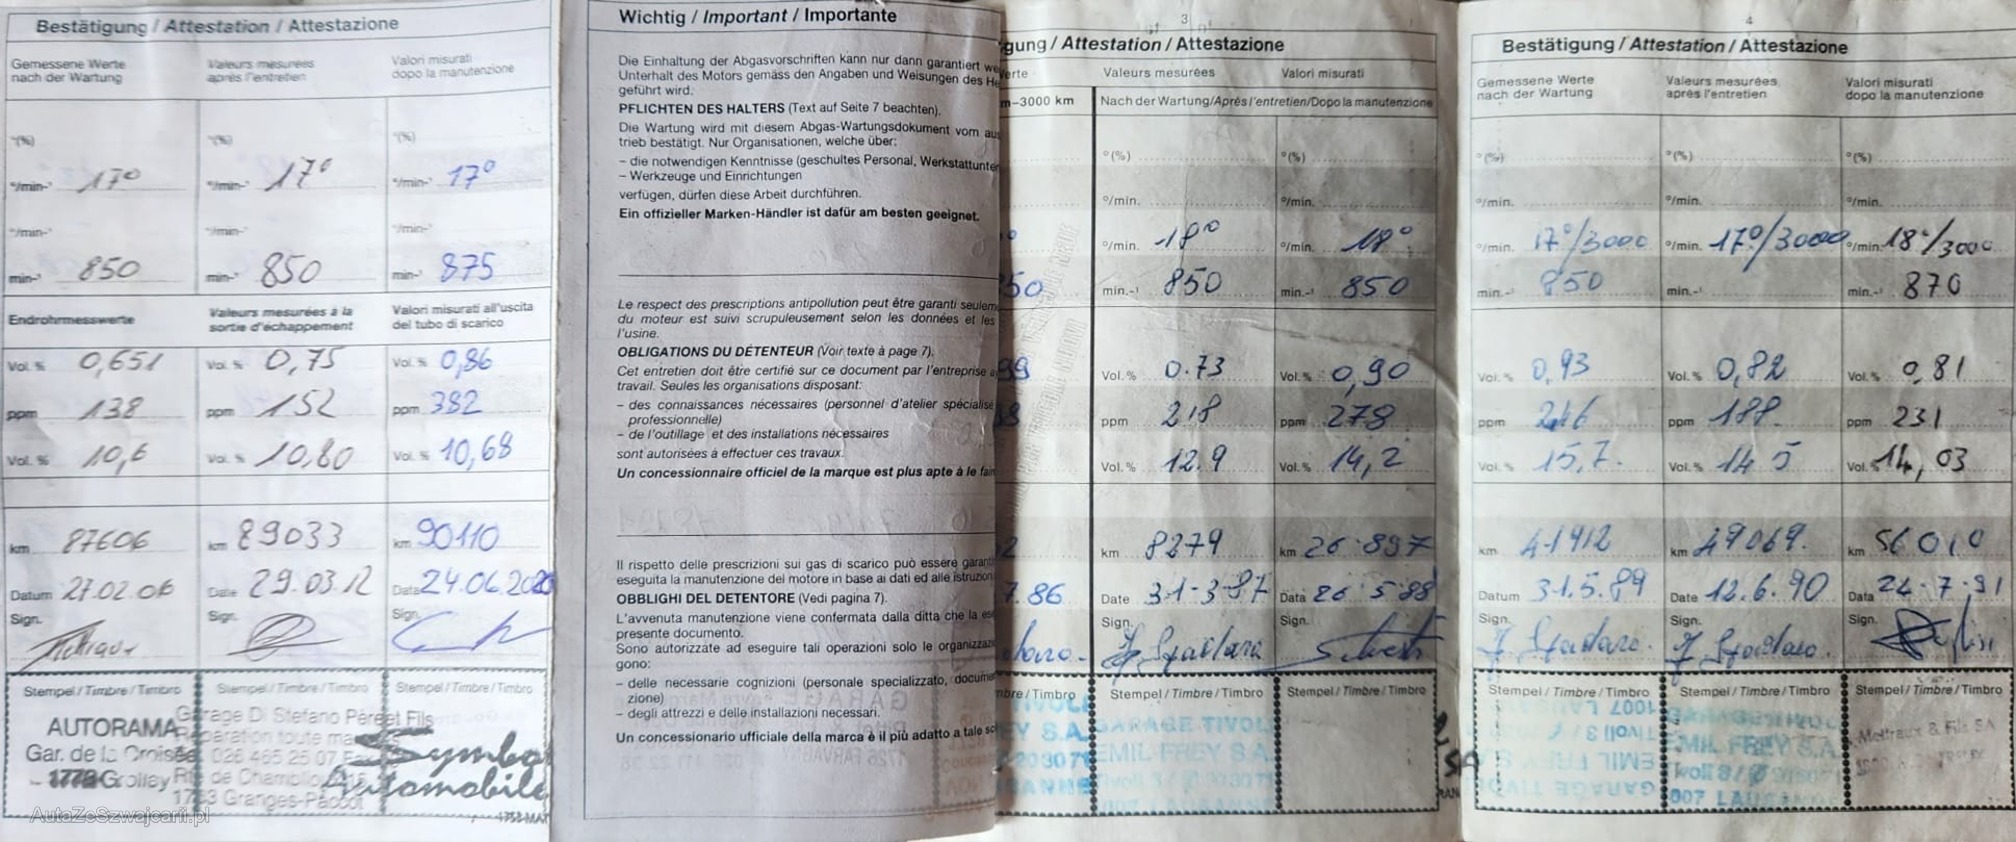 Bestätigung / Attestation / Attestazione
Gemessene Werte nach der Wartung
Valeurs mesurées après l'entretien
Valori misurati dopo la manutenzione
°(%) °(%) °(%)
°/min-¹ 17° °/min-¹ 17° °/min-¹ 17°
°/min-¹ °/min-¹ °/min-¹
min-¹ 850 min-¹ 850 min-¹ 875
Endrohrmesswerte
Valeurs mesurées à la sortie d'échappement
Valori misurati all'uscita del tubo di scarico
Vol. % 0,651 Vol. % 0,75 Vol. % 0,86
ppm 138 ppm 152 ppm 382
Vol. % 10,6 Vol. % 10,80 Vol. % 10,68
km 87606 km 89033 km 90110
Datum 27.02.06 Date 29.03.12 Data 24.06.2020
Sign. Sign. Sign.
Stempel / Timbre / Timbro Stempel / Timbre / Timbro Stempel / Timbre / Timbro
AUTORAMA
Gar. de la Croisée
Grolley
Garage Di Stefano Père et Fils
Réparation toute
026 465 25 07
Rte de Chamblioux
1763 Granges-Paccot
Symbol
Automobile
AutaZeSzwajcarii.pl
Wichtig / Important / Importante
Die Einhaltung der Abgasvorschriften kann nur dann garantiert we
Unterhalt des Motors gemäss den Angaben und Weisungen des He
geführt wird.
PFLICHTEN DES HALTERS (Text auf Seite 7 beachten).
Die Wartung wird mit diesem Abgas-Wartungsdokument vom aus
trieb bestätigt. Nur Organisationen, welche über:
– die notwendigen Kenntnisse (geschultes Personal, Werkstattunter
– Werkzeuge und Einrichtungen
verfügen, dürfen diese Arbeit durchführen.
Ein offizieller Marken-Händler ist dafür am besten geeignet.
Le respect des prescriptions antipollution peut être garanti seulem
du moteur est suivi scrupuleusement selon les données et les
l'usine.
OBLIGATIONS DU DÉTENTEUR (Voir texte à page 7).
Cet entretien doit être certifié sur ce document par l'entreprise a
travail. Seules les organisations disposant:
– des connaissances nécessaires (personnel d'atelier spécialisé
professionnelle)
– de l'outillage et des installations nécessaires
sont autorisées à effectuer ces travaux.
Un concessionnaire officiel de la marque est plus apte à le fair
Il rispetto delle prescrizioni sui gas di scarico può essere garanti
eseguita la manutenzione del motore in base ai dati ed alle istruzion
OBBLIGHI DEL DETENTORE (Vedi pagina 7).
L'avvenuta manutenzione viene confermata dalla ditta che la ese
presente documento.
Sono autorizzate ad eseguire tali operazioni solo le organizzazi
gono:
– delle necessarie cognizioni (personale specializzato, docume
zione)
– degli attrezzi e delle installazioni necessari.
Un concessionario ufficiale della marca è il più adatto a tale sco
3
gung / Attestation / Attestazione
Werte Valeurs mesurées Valori misurati
m–3000 km Nach der Wartung/Après l'entretien/Dopo la manutenzione
°(%) °(%)
°/min. °/min.
° °/min. 18° °/min. 18°
50 min.-¹ 850 min.-¹ 850
99 Vol. % 0.73 Vol. % 0,90
ppm 218 ppm 278
Vol. % 12.9 Vol. % 14,2
2 km 8279 km 26.897
7.86 Date 31-3-87 Data 26-5-88
Sign. Sign.
bre / Timbro Stempel / Timbre / Timbro Stempel / Timbre / Timbro
GARAGE TIVOLI
EMIL FREY S.A.
4
Bestätigung / Attestation / Attestazione
Gemessene Werte nach der Wartung
Valeurs mesurées après l'entretien
Valori misurati dopo la manutenzione
°(%) °(%) °(%)
°/min. °/min. °/min.
°/min. 17°/3000 °/min. 17°/3000 °/min. 18°/3000
min.-¹ 850 min.-¹ min.-¹ 870
Vol. % 0,93 Vol. % 0,82 Vol. % 0,81
ppm 246 ppm 188 ppm 231
Vol. % 15,7 Vol. % 14 5 Vol. % 14,03
km 41912 km 49069. km 56010
Datum 31.5.89 Date 12.6.90 Data 24-7-91
Sign. Sign. Sign.
Stempel / Timbre / Timbro Stempel / Timbre / Timbro Stempel / Timbre / Timbro
1007 LAUSANNE
EMIL FREY S.A.
GARAGE TIVOLI
EMIL FREY S.A.
Mettraux & Fils SA